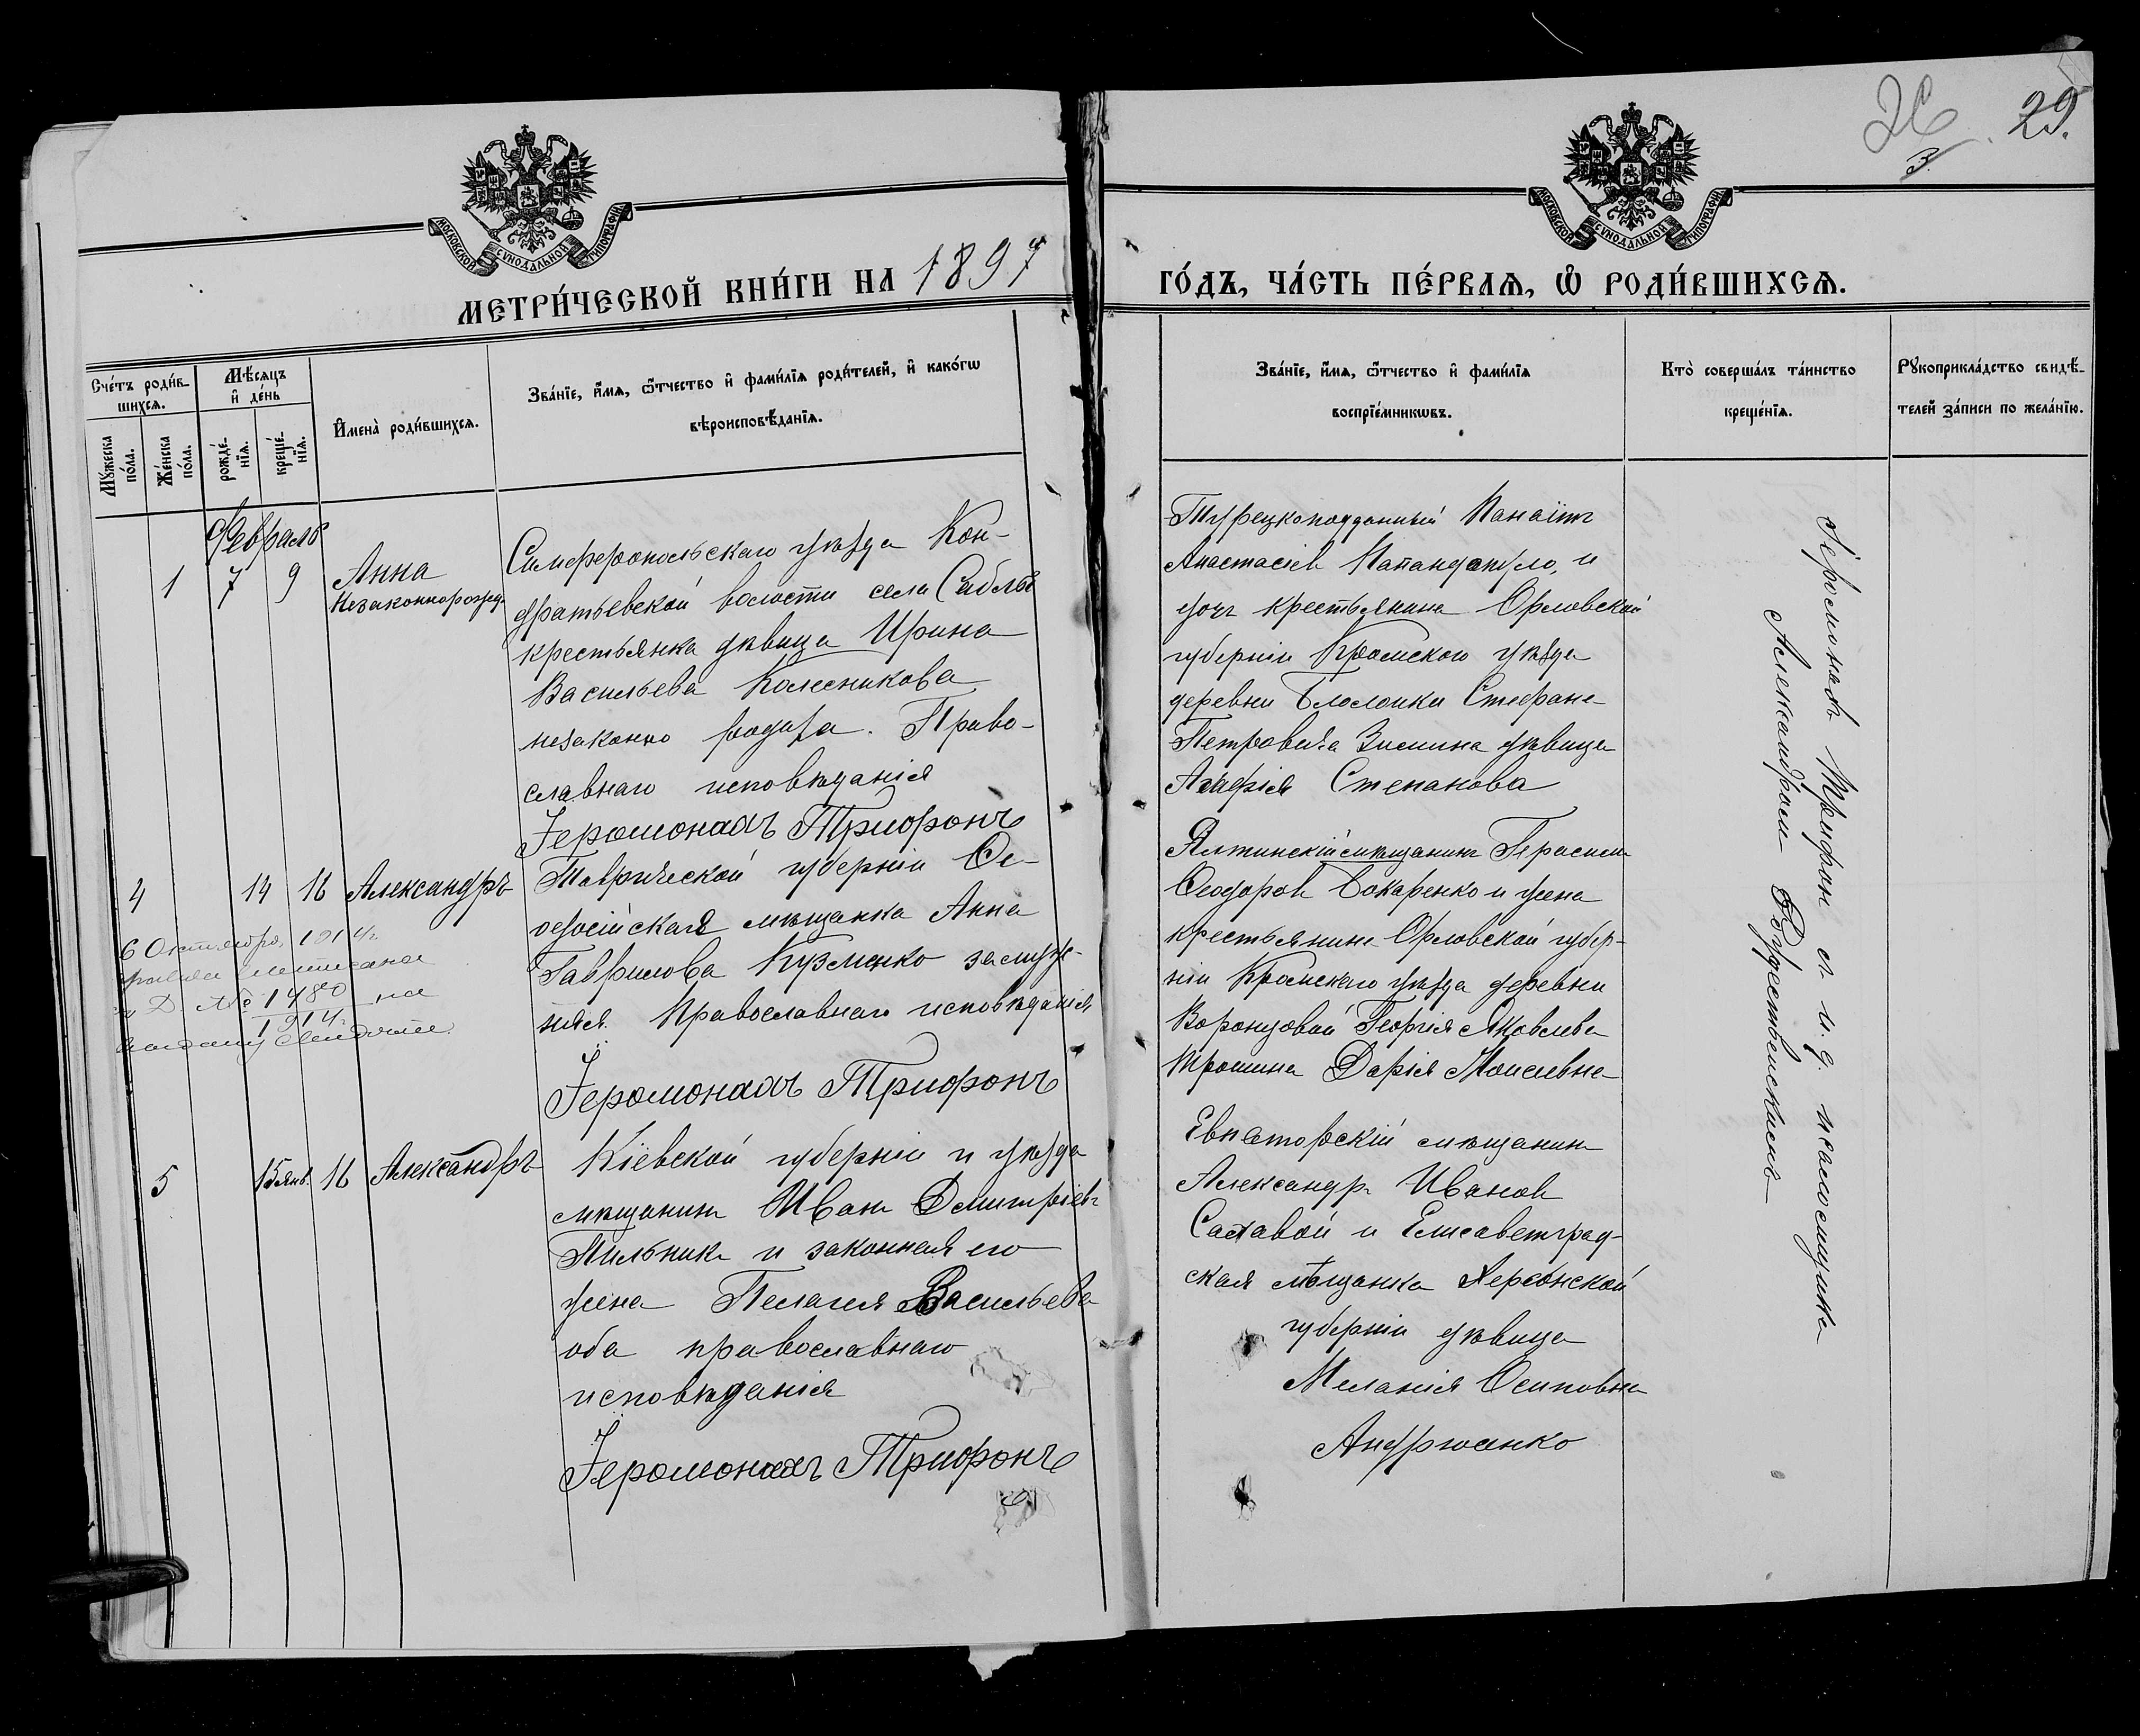 29.
26
3.
МОСКОВСКОЙ СѴНОДАЛЬНОЙ ТИПОГРАФІИ
МОСКОВСКОЙ СѴНОДАЛЬНОЙ ТИПОГРАФІИ
МЕТРИ́ЧЕСКОЙ КНИ́ГИ НА 1897
ГО́ДЪ, ЧА́СТЬ ПЕ́РВАѦ, Ѡ҆ РОДИ́ВШИХСѦ.
Сче́тъ роди́в-
шихсѧ.
Мꙋ́жеска
по́ла.
Же́нска
по́ла.
Мѣ́сѧцъ
и҆ де́нь
рожде́-
нїѧ.
креще́-
нїѧ.
И҆мена̀ роди́вшихсѧ.
Зва́нїе, и҆́мѧ, ѻ҆́тчество и҆ фамѝлїѧ роди́телей, и҆ како́гѡ
вѣроисповѣ́данїѧ.
Зва́нїе, и҆́мѧ, ѻ҆́тчество и҆ фами́лїѧ
воспрїе́мникѡвъ.
Кто̀ соверша́лъ та́инство
креще́нїѧ.
Рꙋкоприкла́дство свидѣ́-
телей за́писи по жела́нїю.
Февраль
1 7 9 Анна
Незаконнорожд.
Симферопольскаго уѣзда Кон-
дратьевской волости села Саблы
крестьянка дѣвица Ирина
Васильева Колесникова
незаконно родила. Право-
славнаго исповѣданія
Іеромонахъ Трифонъ
Турецкоподданный Панаіотъ
Анастасіев Папандопуло, и
дочь крестьянина Орловской
губерніи Кромского уѣзда
деревни Стефана
Петровича Зимина дѣвица
Агафія Степанова
4 14 16 Александръ
6 Октября 1914 г.
№ 1480 на
1914 г.
Таврической губерніи Ѳе-
одосійская мѣщанка Анна
Гаврилова Кузменко замуж-
няя. Православнаго исповѣданія
Іеромонахъ Трифонъ
Ялтинскій мѣщанинъ Герасимъ
Ѳеодоров Бокаренко и жена
крестьянина Орловской губер-
ніи Кромскаго уѣзда деревни
Воронцовой Георгія Яковлева
Трошина Дарія Моисеевна
5 15 янв. 16 Александръ
Кіевской губерніи и уѣзда
мѣщанинъ Иванъ Димитріевъ
Пильникъ и законная его
жена Пелагея Васильева
оба православнаго
исповѣданія
Іеромонахъ Трифонъ
Евпаторскій мѣщанинъ
Александр Иванов
и Елисаветград-
ская мѣщанка Херсонской
губерніи дѣвица
Меланія Осиповна
Андрющенко
Іеромонахъ Трифонъ с и. д. псаломщика
Александромъ Рождественскимъ